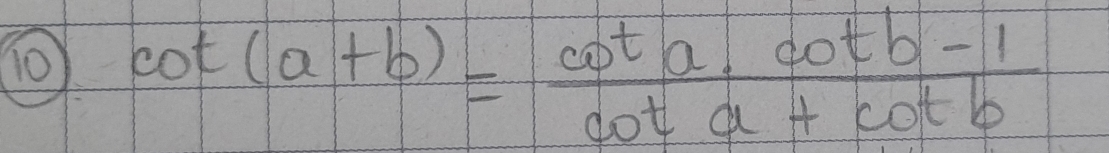 ⑩ cot (a+b) = (cot a . cot b - 1) / (cot a + cot b)